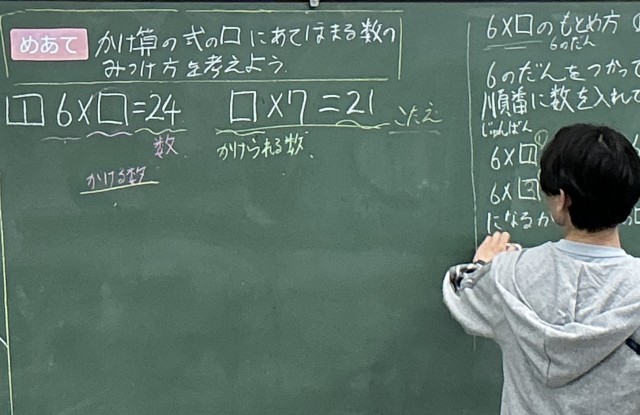 めあて かけ算の式の□にあてはまる数の
みつけ方を考えよう.
1 6×□=24
数
かける数
□×7=21
かけられる数
こたえ
6×□のもとめ方
6のだん
6のだんをつかって
順番に数を入れて
じゅんばん
6×1
6×3
になるか